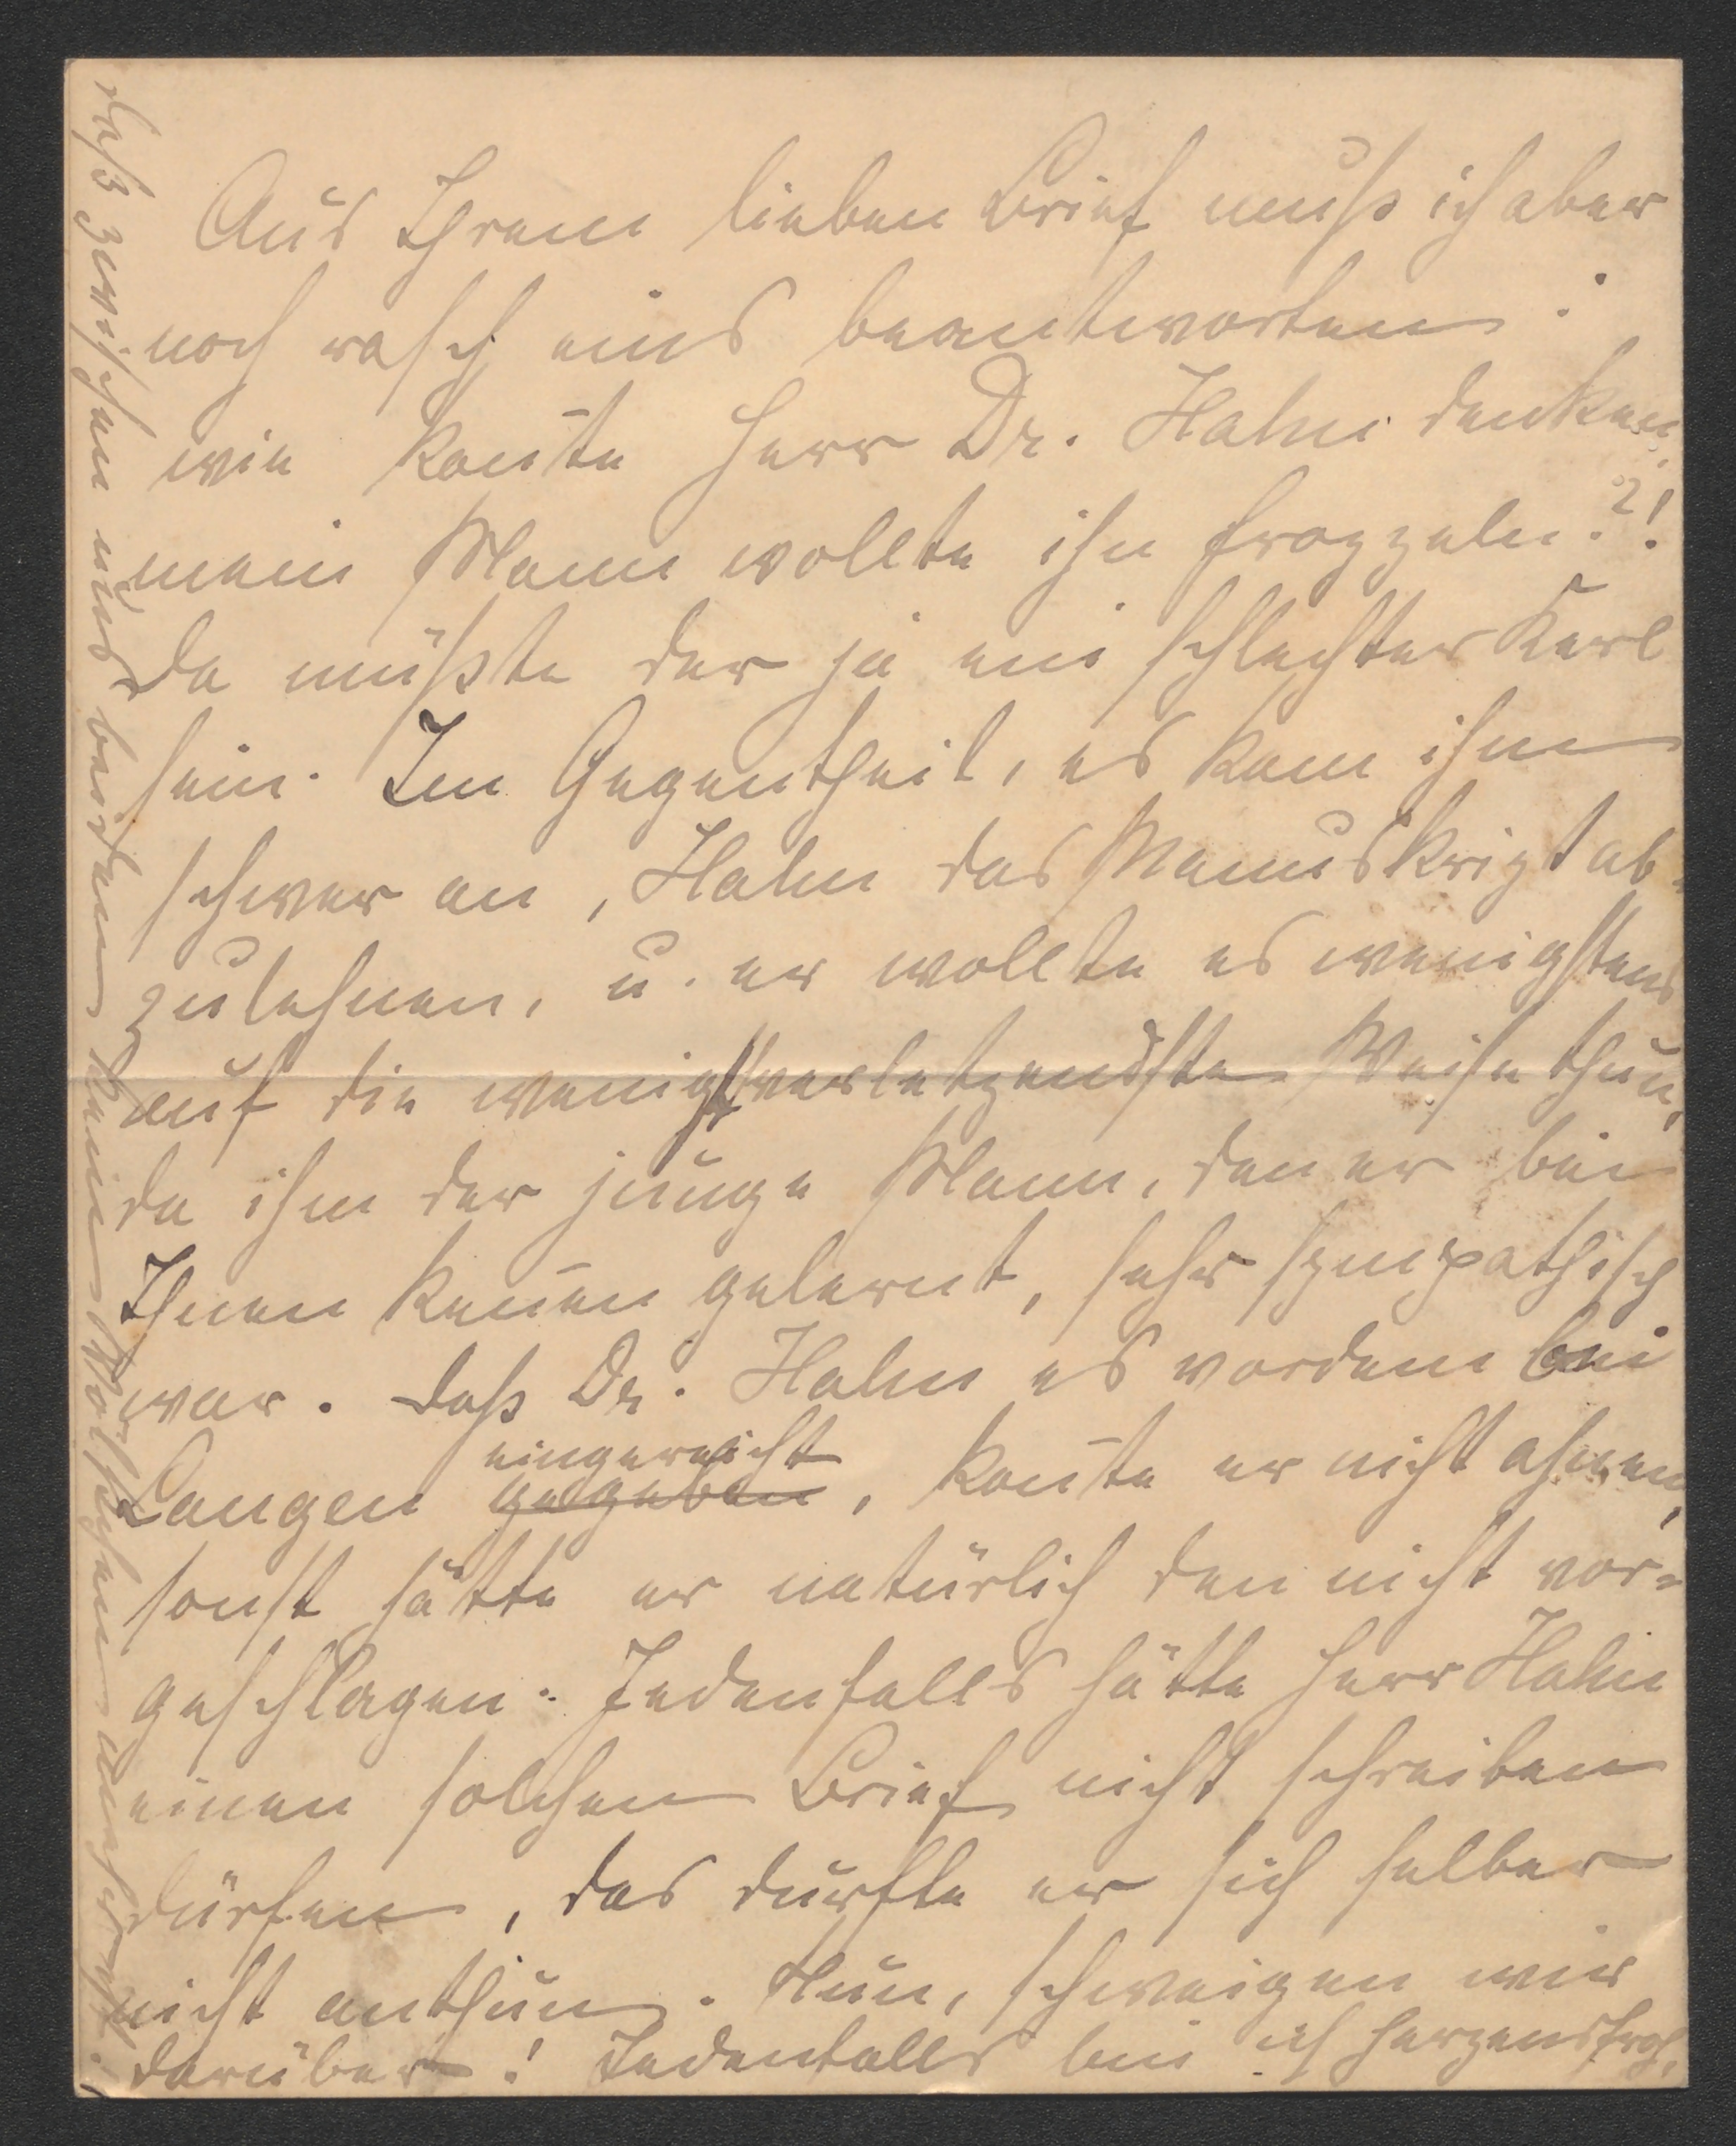 Aus Ihrem lieben Brief muß ich aber
noch rasch eins beantworten:
wie kon̄te Herr Dr. Hahn denken,
mein Mann wollte ihn frozzeln?!
Da müßte der ja ein schlechter Kerl
sein. Im Gegentheil, es kam ihm
schwer an, Hahn das Manuskript ab-
zulehnen, u. er wollte es wenigstens
auf die wenigstverletzendste Weise thun,
da ihm der junge Mann, den er bei
Ihnen ken̄en gelernt, sehr sympathisch
war. Daß Dr. Hahn es vordem bei
Langen gegeben eingereicht, kon̄te er nicht ahnen,
sonst hätte er natürlich den nicht vor-
geschlagen. Jedenfalls hätte Herr Hahn
einen solchen Brief nicht schreiben
dürfen, das durfte er sich selber
nicht anthun. Nun, schweigen wir
darüber! Jedenfalls bin ich herzensfroh,
daß zwischen uns beiden kein Wölkchen aufsteigt!